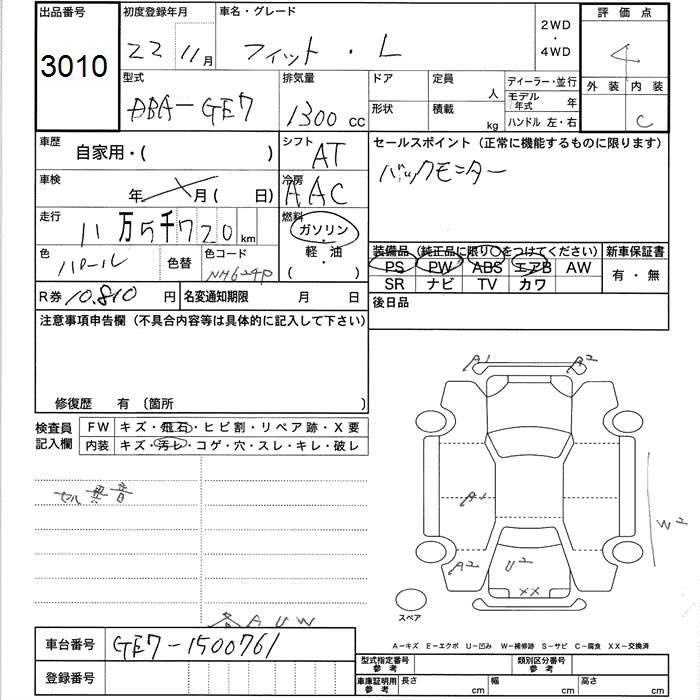 出品番号 初度登録年月 車名・グレード 2WD・4WD 評価点
3010 22 11月 フィット・L 4
外装 内装 C
型式 排気量 ドア 定員 人 ディーラー・並行
DBA-GE7 1300cc 形状 積載 kg モデル年式 年
ハンドル 左・右
車歴 自家用・( ) シフト AT セールスポイント(正常に機能するものに限ります)
バックモニター
車検 年 月( 日) 冷房 AAC
走行 11万5千720km 燃料 ガソリン・軽油 ( )
色 パール 色替 色コード NH624P
装備品(純正品に限り○をつけてください) 新車保証書
PS PW ABS エアB AW 有・無
SR ナビ TV カワ
R券 10,810円 名変通知期限 月 日 後日品
注意事項申告欄(不具合内容等は具体的に記入して下さい)
修復歴 有 〔箇所 〕
検査員記入欄 FW キズ・飛石・ヒビ割・リペア跡・X要
内装 キズ・汚レ・コゲ・穴・スレ・キレ・破レ
セル異音
各AUW
A1 A2
A1
W2
A2 U2
XX
スペア
車台番号 GE7-1500761
A-キズ E-エクボ U-凹み W-補修跡 S-サビ C-腐食 XX-交換済
登録番号
型式指定番号 参考 類別区分番号 参考
車庫証明用 参考 長さ cm 幅 cm 高さ cm